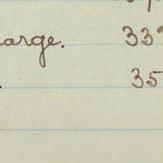 arge. 33
35